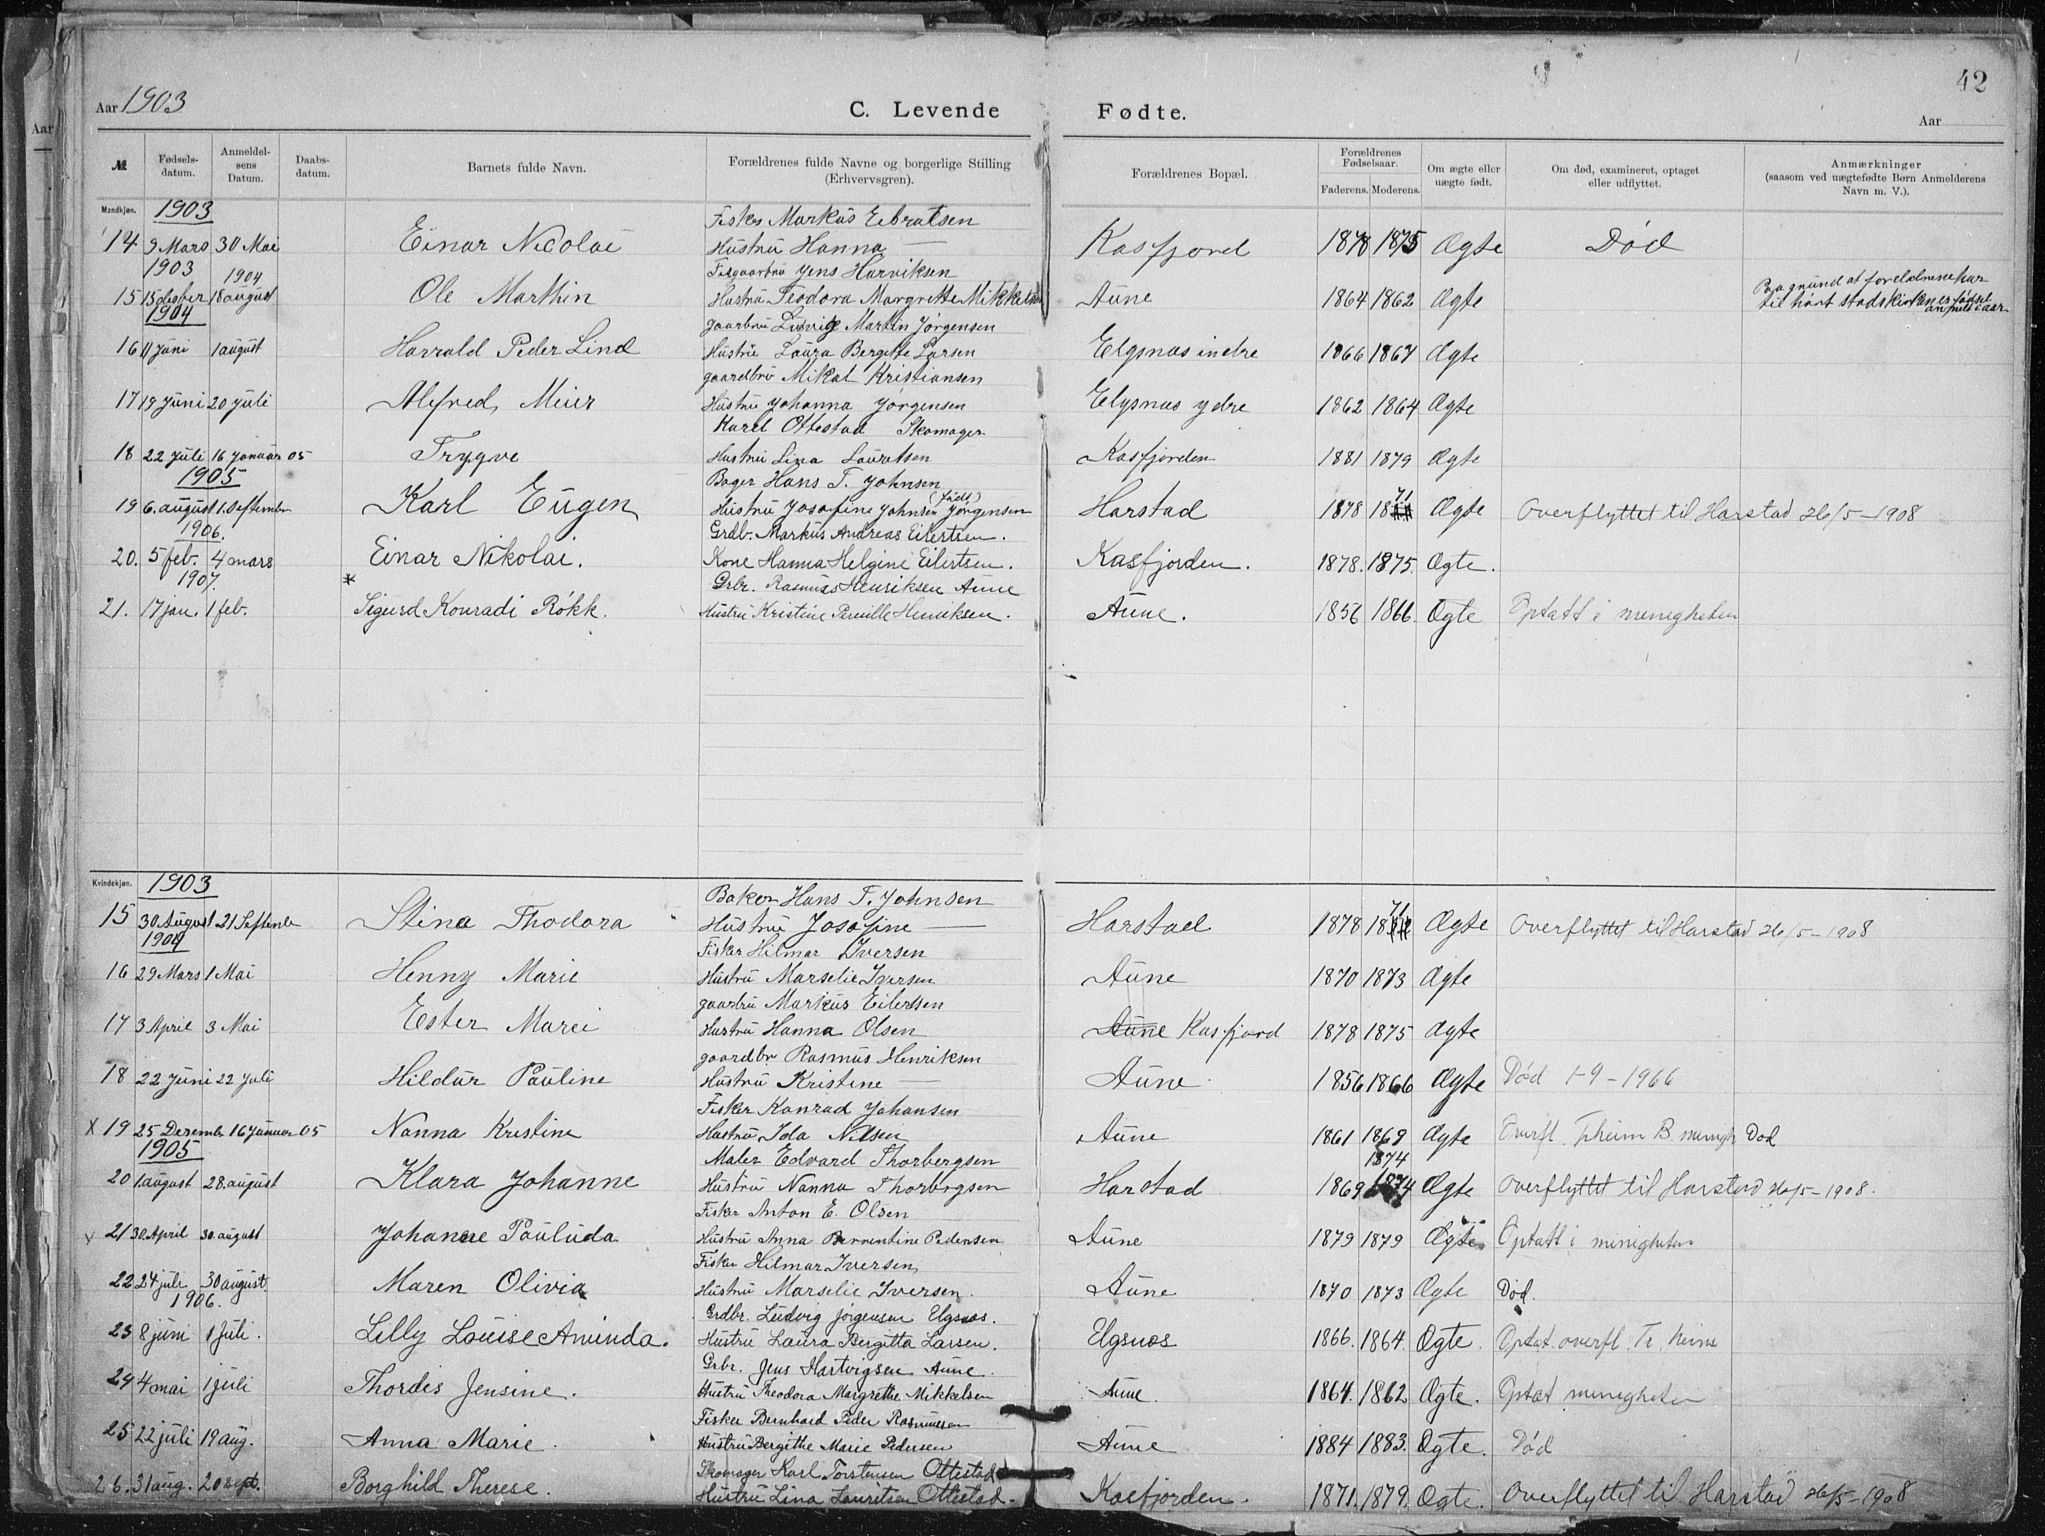 42
Aar 1903 C. Levende Fødte. Aar
Aar
№ Fødsels-datum. Anmeldelsens Datum. Daabs-datum. Barnets fulde Navn. Forældrenes fulde Navne og borgerlige Stilling (Erhvervsgren). Forældrenes Bopæl. Forældrenes Fødselsaar. Faderens. Moderens. Om ægte eller uægte født. Om død, examineret, optaget eller udflyttet. Anmærkninger (saasom ved uægtefødte Børn Anmelderens Navn m. V.).
Mandkjøn. 1903
Fisker Markus Eibratsen
14 9 Mars 30 Mai Einar Nicolai Hustru Hanna — Kasfjord 1878 1875 Ægte Død
1903 1904 Jens Harviksen
15 15 18 august Ole Marthin Hustru Teodora Margrette Mikkelsen Aune 1864 1862 Ægte
1904 gaarbru Ludvig Martin Jørgensen
16 11 Juni 1 august Harrald Peder Lind Hustru Laura Bergitte Larsen Elgsnas indre 1866 1864 Ægte
gaardbru Mikal Kristiansen
17 19 Juni 20 Juli Alfred Meier Hustru Johanna Jørgensen Elgsnas ydre 1862 1864 Ægte
Karl Ottestad Skomager
18 22 Juli 16 Januar 05 Trygve Hustru Lina Lauritsen Kasfjorden 1881 1879 Ægte
1905 Bager Hans T. Johnsen
19 6. august 1. September Karl Eugen Hustru Josefine Johnsen (født) Jørgensen Harstad 1878 1871 Ægte Overflyttet til Harstad 26/5-1908
1906. Grdb. Markus Andreas Eilertsen.
20. 5 feb. 4 mars Einar Nikolai. Kone Hanna Helgine Eilertsen. Kasfjorden. 1878. 1875. Ægte.
1907. Grbr. Rasmus Henriksen Aune
21. 17 jan. 1 feb. * Sigurd Konradi Røkk. Hustru Kristine Pernille Henriksen. Aune. 1856 1866. Ægte Optatt i menigheten
Kvindekjøn. 1903
Baker Hans T. Johnsen
15 30 August 21 September Stina Thodora Hustru Josefine — Harstad 1878 1871 Ægte Overflyttet til Harstad 26/5-1908
1904 Fisker Hilmar Iversen
16 29 Mars 1 Mai Henny Marie Hustru Marselie Iversen Aune 1870 1873 Ægte
gaarbru Markus Eilertsen
17 3 April 3 Mai Ester Marei Hustru Hanna Olsen Aune Kasfjord 1878 1875 Ægte
gaardbr Rasmus Henriksen
18 22 Juni 22 Juli Hildur Pauline Hustru Kristine — Aune 1856 1866 Ægte Død 1-9-1966
Fisker Konrad Johansen
X 19 25 Desember 16 Januar 05 Nanna Kristine Hustru Ida Nilsen Aune 1861 1869 Ægte Overfl. Theim B. menigh Død
1905 Maler Edvard Thorbergsen 1874
20 1 august 28. august Klara Johanne Hustru Nanna Thorbergsen Harstad 1869 1874 Ægte Overflyttet til Harstad 26/5-1908.
Fisker Anton E. Olsen
21 30 April 30. august Johanne Pauluda Hustru Anna Pedersen Aune 1879 1879 Ægte Optatt i menigheten
Fisker Hilmar Iversen
22 24 juli 30 august. Maren Olivia Hustru Marselie Iversen. Aune 1870 1873 Ægte Død.
1906. Grdbr. Ludvig Jørgensen Elgsnøs.
23 8 juni 1 Juli. Lilly Louise Aminda. Hustru Laura Bergitta Larsen. Elgsnøs 1866. 1864. Ægte. Optat. overfl. Tr. heim
Grbr. Jens Hartvigsen Aune.
24 4 mai 1 juli Thordis Jensine. Hustru Theodora Margrethe Mikkelsen Aune. 1864. 1862 Ægte. Optat menigheten
Fisker Bernhard Peder Rasmussen
25 22 juli 19 aug. Anna Marie. Hustru Bergithe Marie Pedersen Aune 1884 1883. Ægte. Død
Skomager Karl Torstensen Ottestad
26. 31 aug. 20 sept. Borghild Therese. Hustru Lina Lauritsen Ottestad. Kasfjorden. 1871. 1879. Ægte. Overflyttet til Harstad 26/5-1908